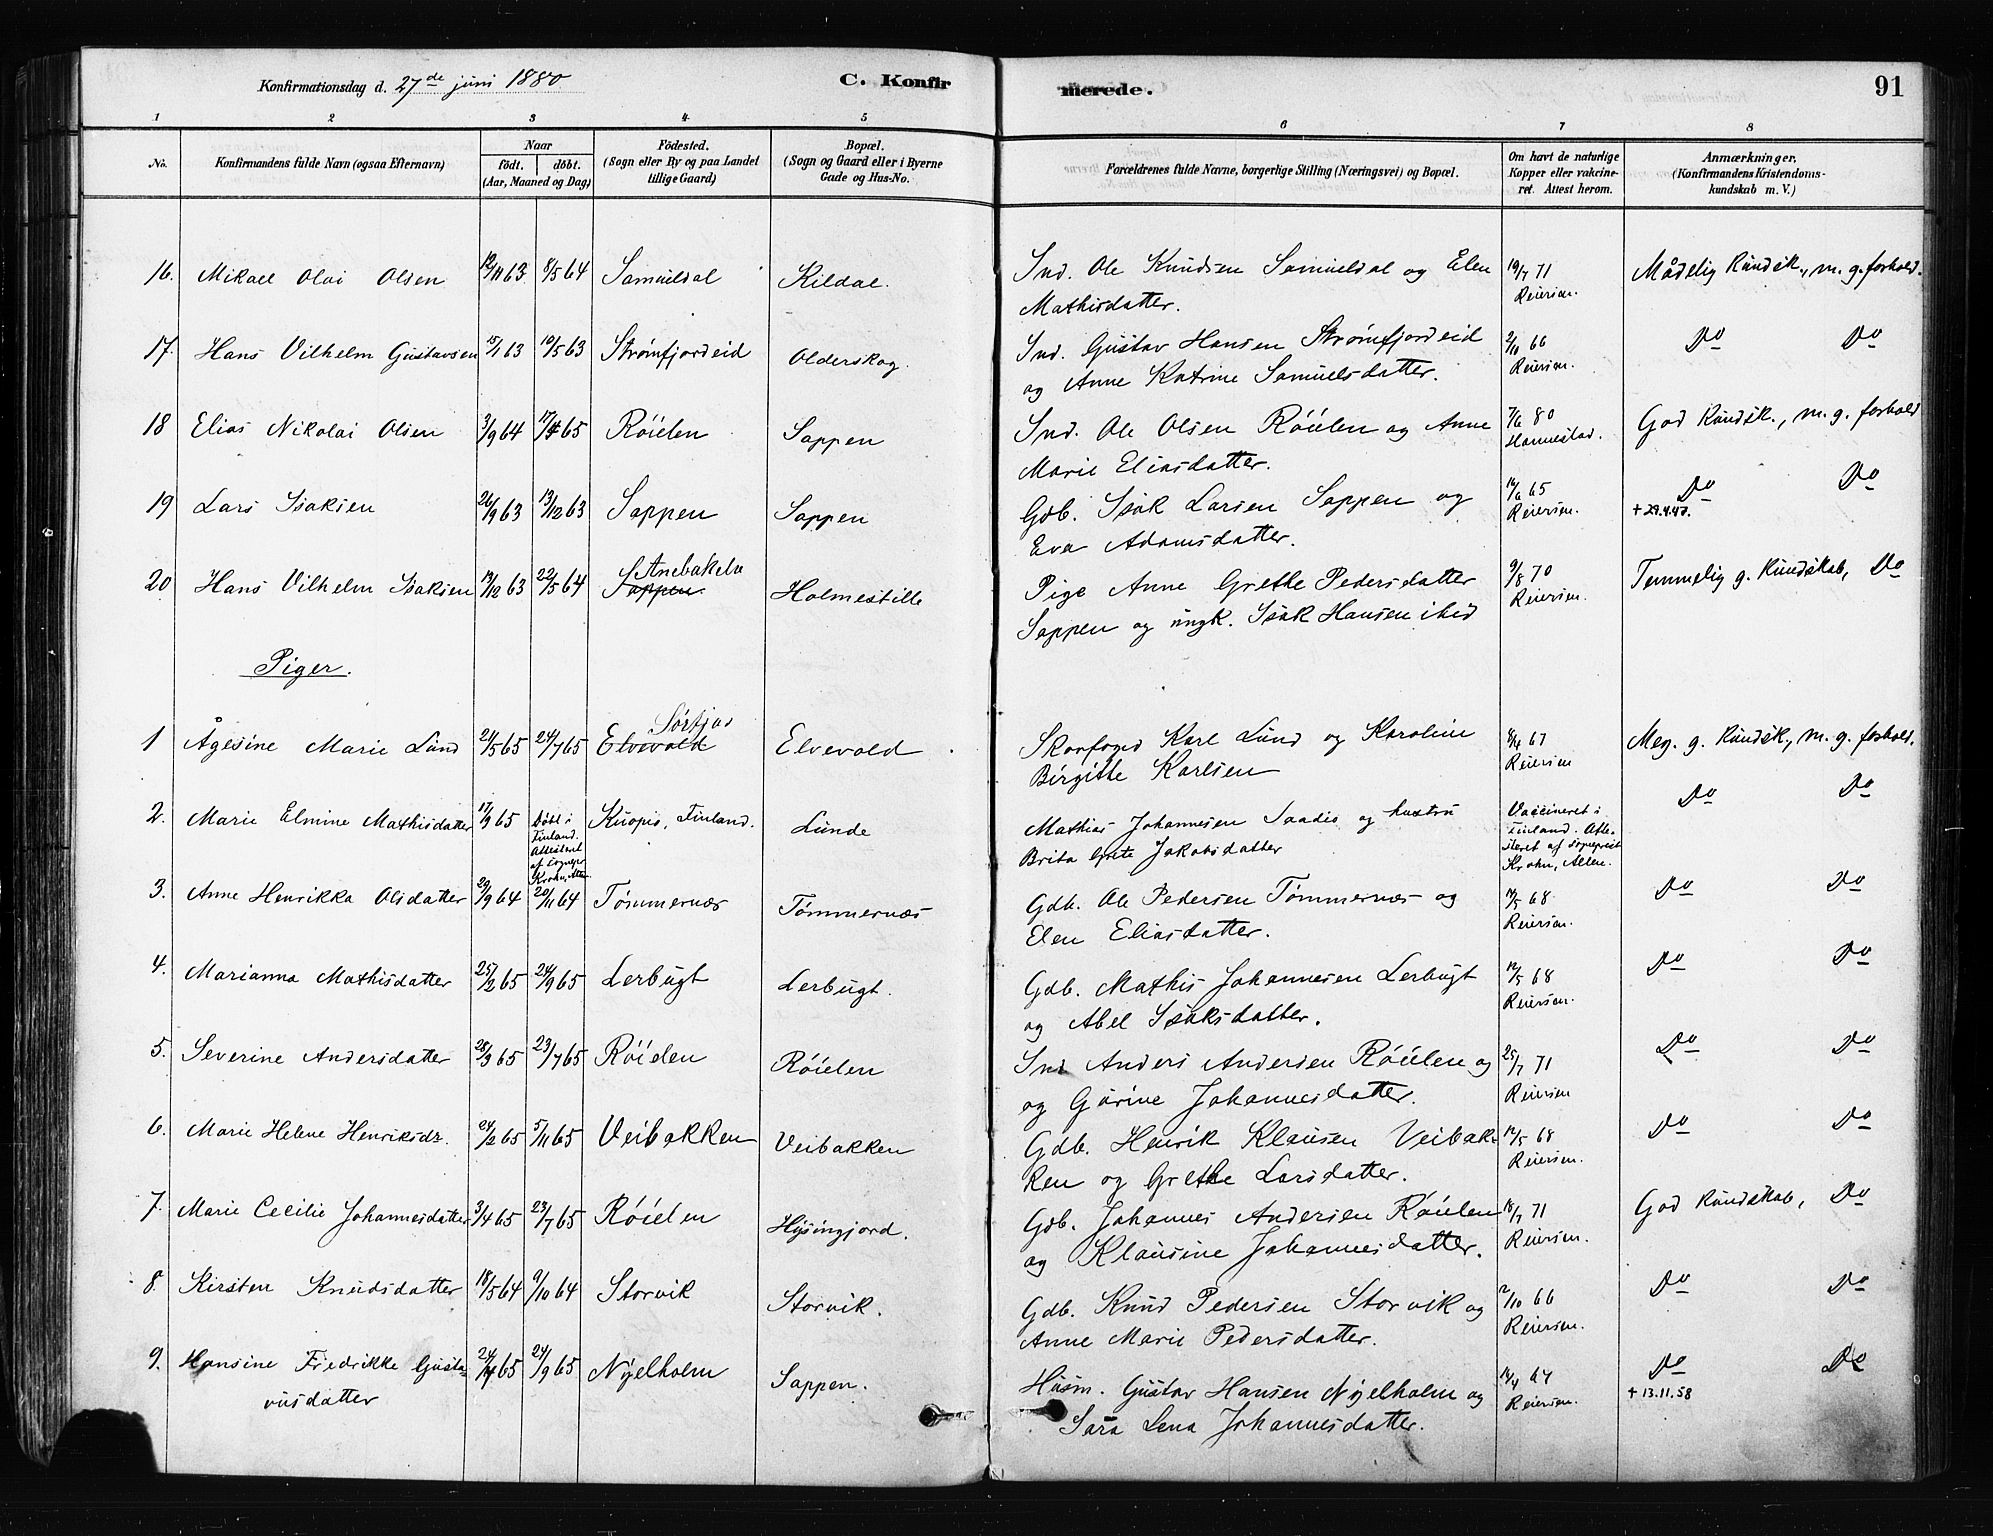 Konfirmationsdag d. 27de juni 1880
C. Konfirmerede.
91
1 2 3 4 5 6 7 8
No.
Konfirmandens fulde Navn (ogsaa Efternavn)
Naar
födt. döbt.
(Aar, Maaned og Dag)
Födested.
(Sogn eller By og paa Landet
tillige Gaard)
Bopæl.
(Sogn og Gaard eller i Byerne
Gade og Hus-No.
Forældrenes fulde Navne, borgerlige Stilling (Næringsvei) og Bopæl.
Om havt de naturlige
Kopper eller vakcine-
ret. Attest herom.
Anmærkninger.
(Konfirmandens Kristendoms-
kundskab m. V.)
16. Mikael Olai Olsen 12/11 63 8/5 64 Samuildal Kildal. Ind. Ole Knudsen Samueldal og Elen 19/7 71 Mådelig Kundsk., m. g. forhold.
Mathisdatter. Reiersen.
17. Hans Vilhelm Gustavsen 15/1 63 10/5 63 Strømfjordeid Olderskog. Ind. Gustav Hansen Strømfjordeid 2/10 66 Do Do
og Anne Katrine Samuelsdatter. Reiersen.
18 Elias Nikolai Olsen 3/9 64 17/4 65 Röielen Sappen Ind. Ole Olsen Röielen og Anne 7/6 80 God Kundsk., m. g. forhold
Marie Eliasdatter. Hannestad.
19 Lars Isaksen 26/9 63 13/12 63 Sappen Sappen Gdb. Isak Larsen Sappen og 14/6 65 Do Do
Eva Adamsdatter. Reiersen. + 29.4.47.
20 Hans Vilhelm Isaksen 19/12 63 22/5 64 Sappen. Holmestille Pige Anne Grethe Pedersdatter 9/8 70 Temmelig g. Kundskab, Do
Sappen og ungk. Isak Hansen ibid Reiersen.
Piger.
1 Ågesine Marie Lund 21/5 65 24/7 65 Elvevold Sörfjor Elvevold Skovfoged Karl Lund og Karoline 8/4 67 Meg. g. Kundsk., m. g. forhold.
Birgitte Karlsen Reiersen
2. Marie Elmine Mathisdatter 17/3 65 Döbt i Finland. Attesteret af Sognepr Krohn, Alten Kuopio, Finland. Lunde Mathias Johannesen Saadio og hustru Vaccineret i Finland. Atte- Do Do
Brita Grete Jakobsdatter steret af sogneprest Krohn, Alten.
3. Anne Henrikka Olsdatter 29/9 64 20/11 64 Tömmernæs Tömmernæs Gdb. Ole Pedersen Tömmernæs og 12/5 68 Do Do
Elen Eliasdatter. Reiersen.
4. Marianna Mathisdatter 25/2 65 24/9 65 Lerbugt Lerbugt. Gdb. Mathis Johannesen Lerbugt 12/5 68 Do Do
og Abel Isaksdatter. Reiersen.
5. Severine Andersdatter 28/3 65 23/7 65 Röielen Röielen Ind Anders Andersen Röielen og 25/7 71 Do Do
og Gurine Johannesdatter. Reiersen
6. Marie Helene Henriksdr. 24/2 65 5/11 65 Veibakken Veibakken Gdb. Henrik Klausen Veibak- 12/5 68 Do Do
ken og Grethe Larsdatter. Reiersen.
7. Marie Cecilie Johannesdatter 3/4 65 23/7 65 Röielen Hysingjord. Gdb. Johannes Andersen Röielen 18/7 71 God Kundskab, Do
og Klausine Johannesdatter. Reiersen.
8. Kirsten Knudsdatter 18/5 64 9/10 64 Storvik Storvik. Gdb. Knud Pedersen Storvik og 2/10 66 Do Do
Anne Marie Pedersdatter. Reiersen.
9. Hansine Fredrikke Gusta- 24/4 65 24/9 65 Nyelholm Sappen. Husm. Gustav Hansen Nyelholm og 14/4 67 Do Do
vusdatter Sara Lena Johannesdatter. Reiersen. + 13.11.58